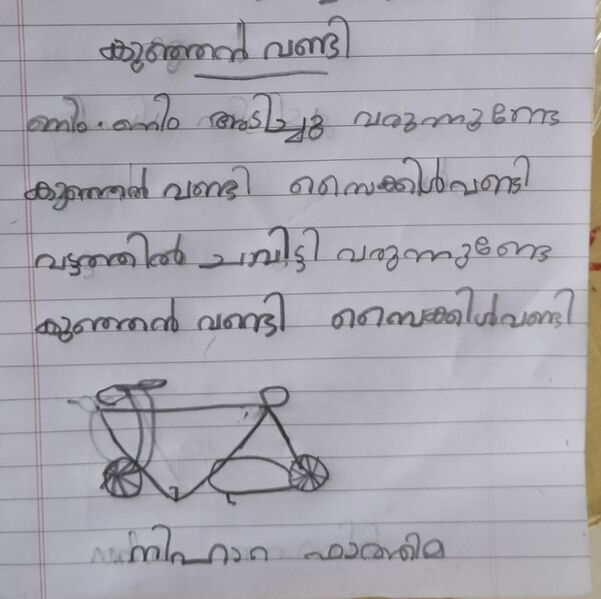 കുഞ്ഞൻ വണ്ടി
ണിം.ണിം അടിച്ചു വരുന്നുണ്ടേ
കുഞ്ഞൻ വണ്ടി സൈക്കിൾവണ്ടി
വട്ടത്തിൽ ചവിട്ടി വരുന്നുണ്ടേ
കുഞ്ഞൻ വണ്ടി സൈക്കിൾവണ്ടി
നിഹാറ ഫാത്തിമ